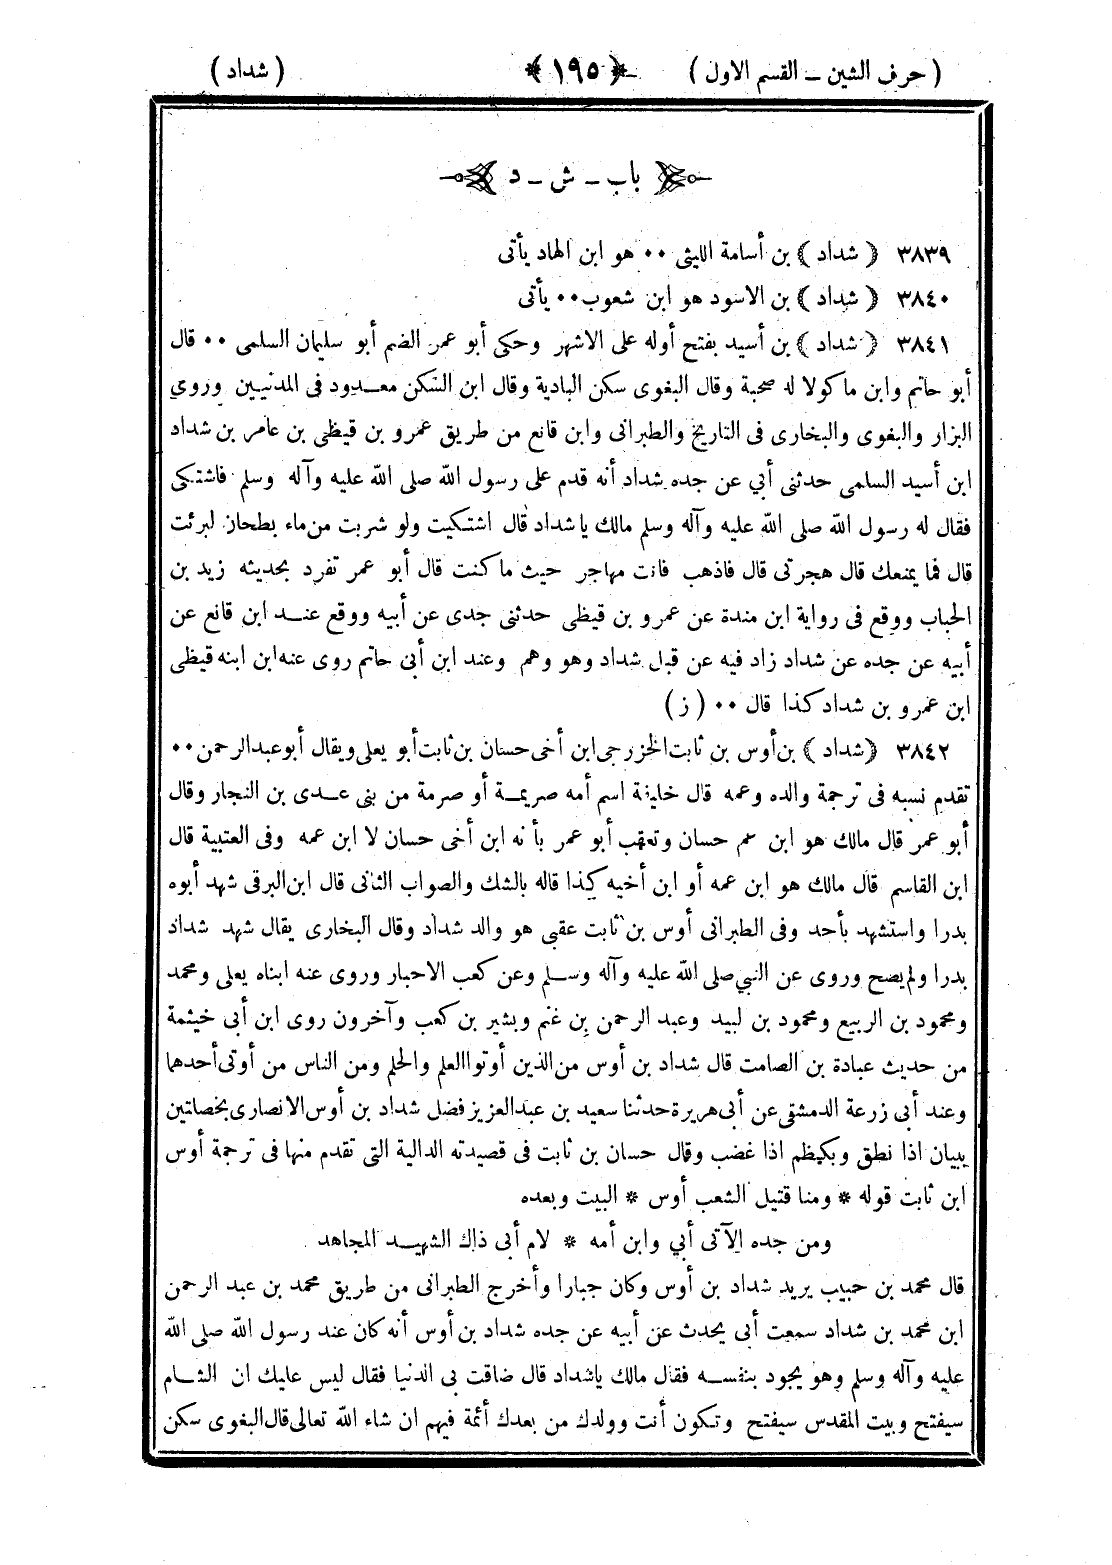 ( حرف الشين ــ القسم الاول ) ﴿ ١٩٥ ﴾ ( شداد )
باب ــ ش ــ د
٣٨٣٩ ﴿ شداد ﴾ بن أسامة الليثى ٠٠ هو ابن الهاد يأتى
٣٨٤٠ ﴿ شداد ﴾ بن الاسود هو ابن شعوب ٠٠ يأتى
٣٨٤١ ﴿ شداد ﴾ بن أسيد بفتح أوله على الاشهر وحكى أبو عمر الضم أبو سليمان السلمى ٠٠ قال
أبو حاتم وابن ماكولا له صحبة وقال البغوى سكن البادية وقال ابن السكن معدود فى المدنيين وروي
البزار والبغوى والبخارى فى التاريخ والطبرانى وابن قانع من طريق عمرو بن قيظى بن عامر بن شداد
ابن أسيد السلمى حدثنى أبي عن جده شداد أنه قدم على رسول الله صلى الله عليه وآله وسلم فاشتكى
فقال له رسول الله صلى الله عليه وآله وسلم مالك ياشداد قال اشتكيت ولو شربت من ماء بطحان لبرئت
قال فما يمنعك قال هجرتى قال فاذهب فانت مهاجر حيث ماكنت قال أبو عمر تفرد بحديثه زيد بن
الحباب ووقع فى رواية ابن مندة عن عمرو بن قيظى حدثنى جدى عن أبيه ووقع عند ابن قانع عن
أبيه عن جده عن شداد زاد فيه عن قبل شداد وهو وهم وعند ابن أبى حاتم روى عنه ابن ابنه قيظى
ابن عمرو بن شداد كذا قال ٠٠ ( ز )
٣٨٤٢ ﴿ شداد ﴾ بن أوس بن ثابت الخزرجى ابن أخى حسان بن ثابت أبو يعلى ويقال أبو عبد الرحمن ٠٠
تقدم نسبه فى ترجمة والده وعمه قال خليفة اسم أمه صريمة أو صرمة من بنى عدى بن النجار وقال
أبو عمر قال مالك هو ابن عم حسان وتعقب أبو عمر بأنه ابن أخى حسان لا ابن عمه وفى العتبية قال
ابن القاسم قال مالك هو ابن عمه أو ابن أخيه كذا قاله بالشك والصواب الثانى قال ابن البرقى شهد أبوه
بدرا واستشهد بأحد وفى الطبرانى أوس بن ثابت عقبى هو والد شداد وقال البخارى يقال شهد شداد
بدرا ولم يصح وروى عن النبي صلى الله عليه وآله وسلم وعن كعب الاحبار وروى عنه ابناه يعلى ومحمد
ومحمود بن الربيع ومحمود بن لبيد وعبد الرحمن بن غنم وبشير بن كعب وآخرون روى ابن أبى خيثمة
من حديث عبادة بن الصامت قال شداد بن أوس من الذين أوتوا العلم والحلم ومن الناس من أوتى أحدهما
وعند أبى زرعة الدمشقى عن أبى هريرة حدثنا سعيد بن عبد العزيز فضل شداد بن أوس الانصارى بخصلتين
ببيان اذا نطق وبكيظم اذا غضب وقال حسان بن ثابت فى قصيدته الدالية التى تقدم منها فى ترجمة أوس
ابن ثابت قوله * ومنا قتيل الشعب أوس * البيت وبعده
ومن جده الآتى أبي وابن أمه * لام أبى ذاك الشهيد المجاهد
قال محمد بن حبيب يريد شداد بن أوس وكان جبارا وأخرج الطبرانى من طريق محمد بن عبد الرحمن
ابن محمد بن شداد سمعت أبى يحدث عن أبيه عن جده شداد بن أوس أنه كان عند رسول الله صلى الله
عليه وآله وسلم وهو يجود بنفسه فقال مالك ياشداد قال ضاقت بى الدنيا فقال ليس عليك ان الشام
سيفتح وبيت المقدس سيفتح وتكون أنت وولدك من بعدك أئمة فيهم ان شاء الله تعالى قال البغوى سكن